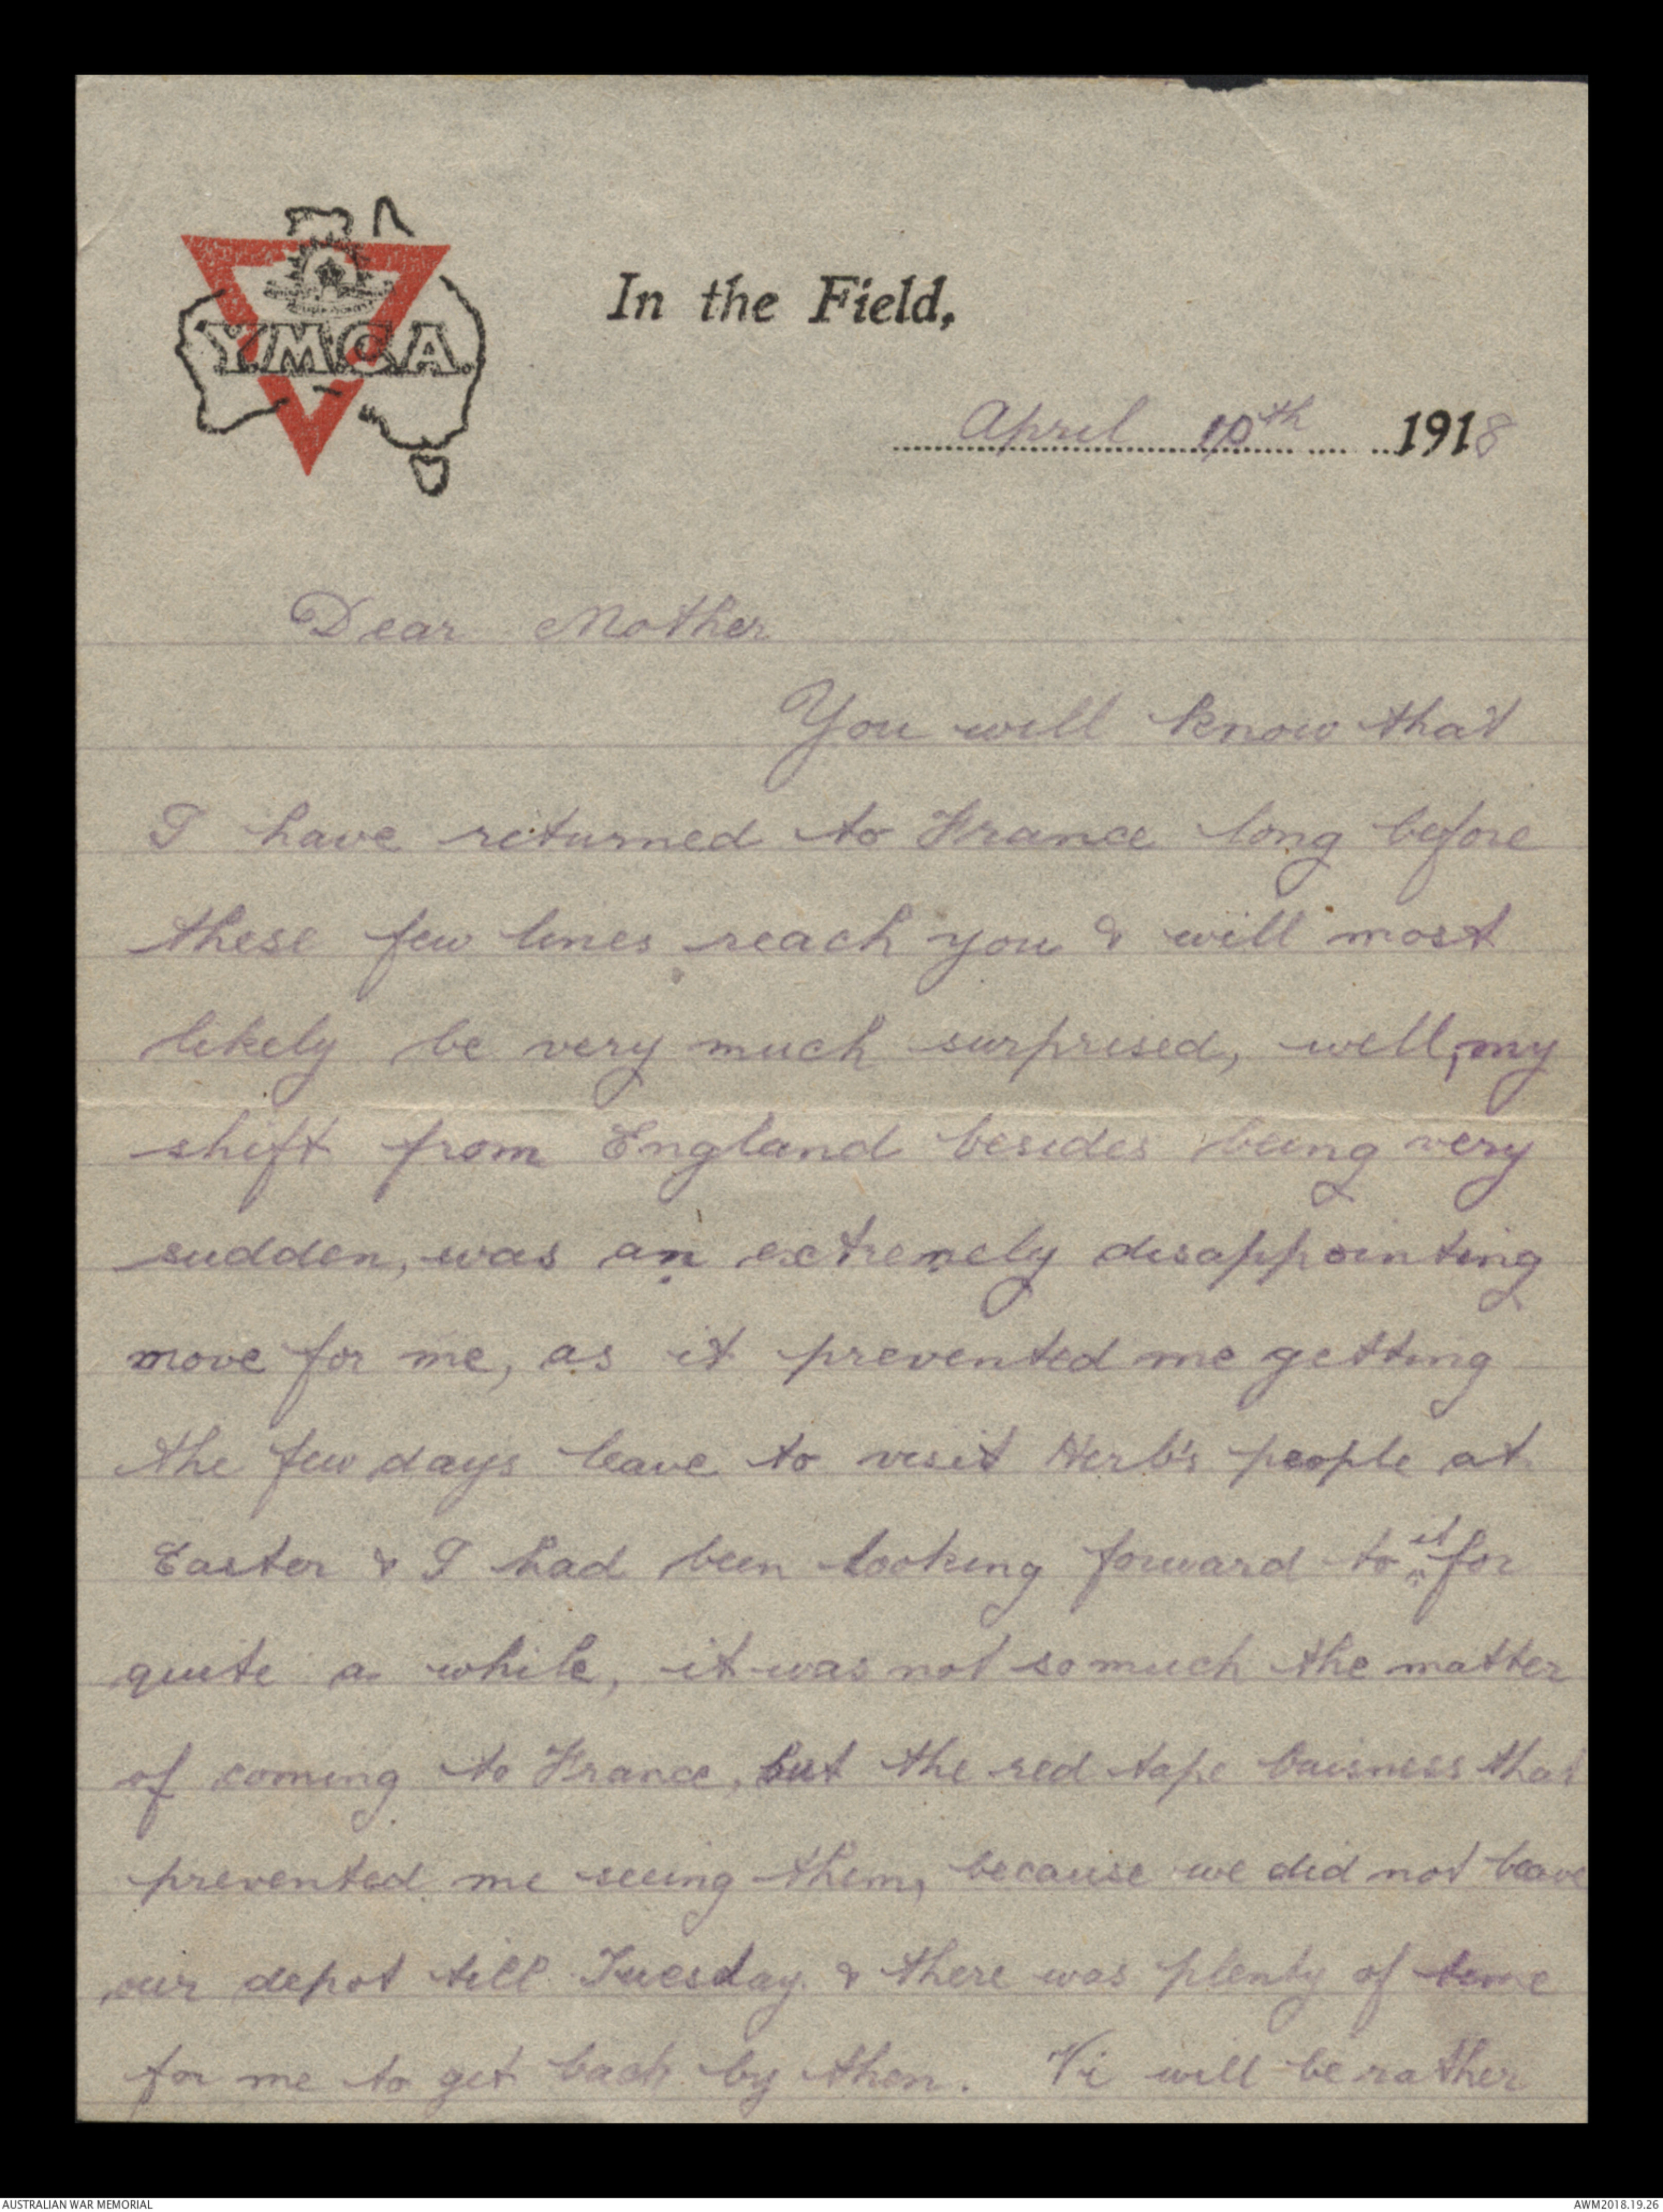 Y.M.C.A.
In the Field,
April 10th 1918
Dear Mother
You will know that
I have returned to France long before
these few lines reach you & will most
likely be very much surprised, well, my
shift from England besides being very
sudden, was an extremely disappointing
move for me, as it prevented me getting
the few days leave to visit Herb's people at
Easter & I had been looking forward to it for
quite a while, it was not so much the matter
of coming to France, but the red tape buisness that
prevented me seeing them, because we did not leave
our depot till Tuesday & there was plenty of time
for me to get back by then. Vi will be rather
AUSTRALIAN WAR MEMORIAL
AWM2018.19.26